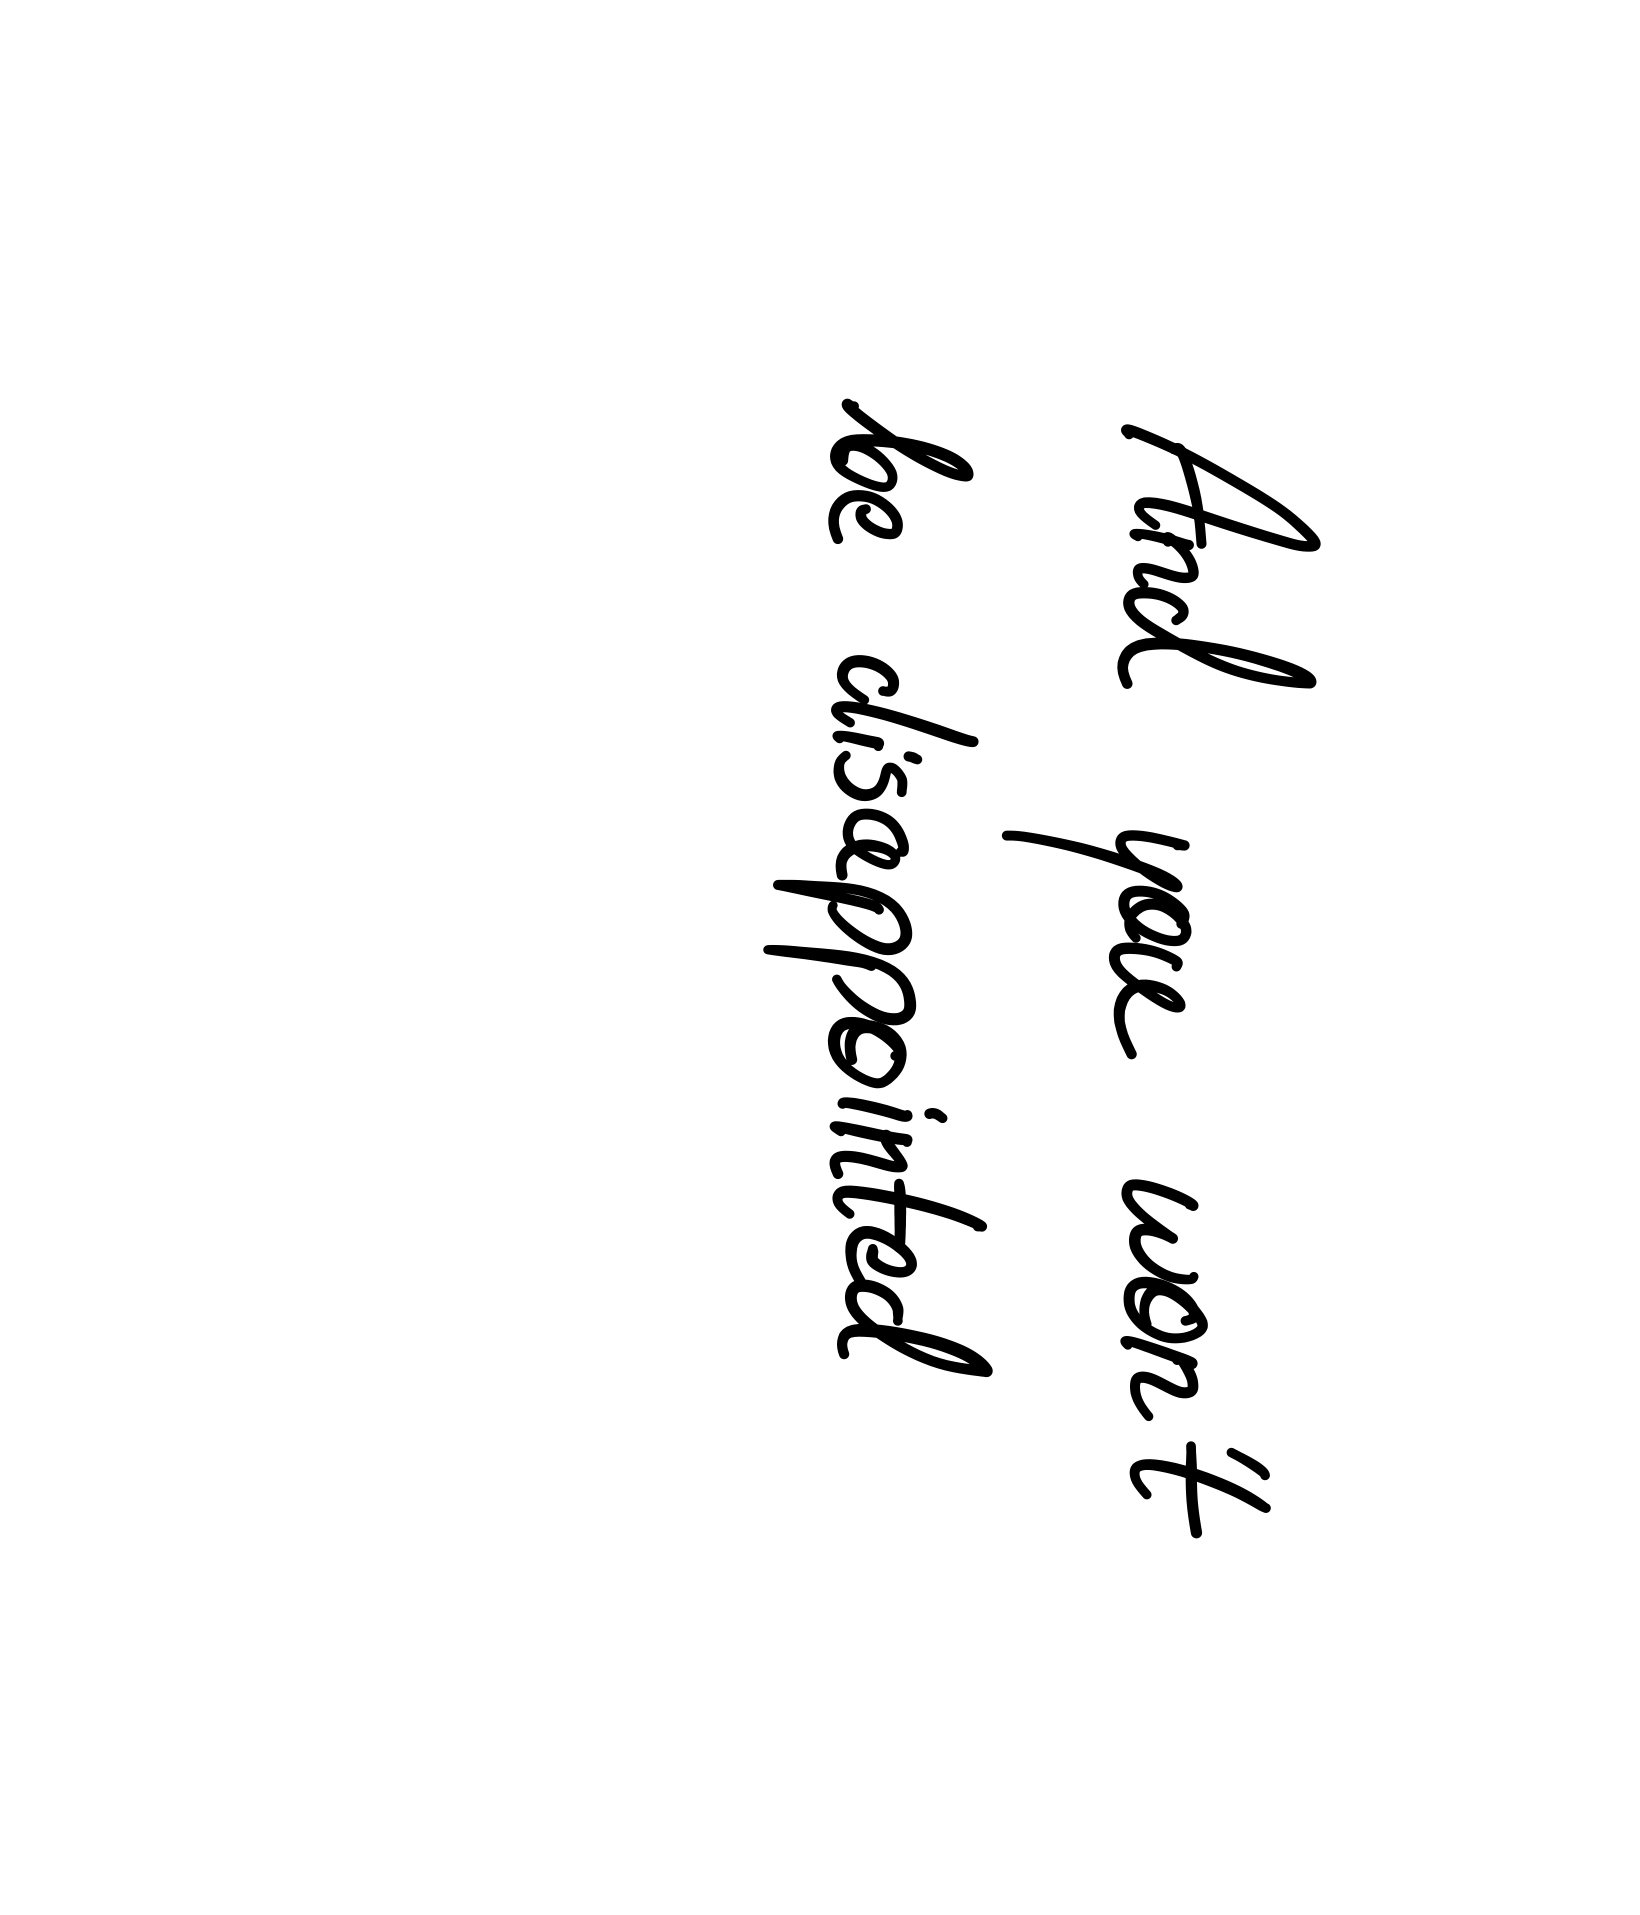 And you won't
be disappointed